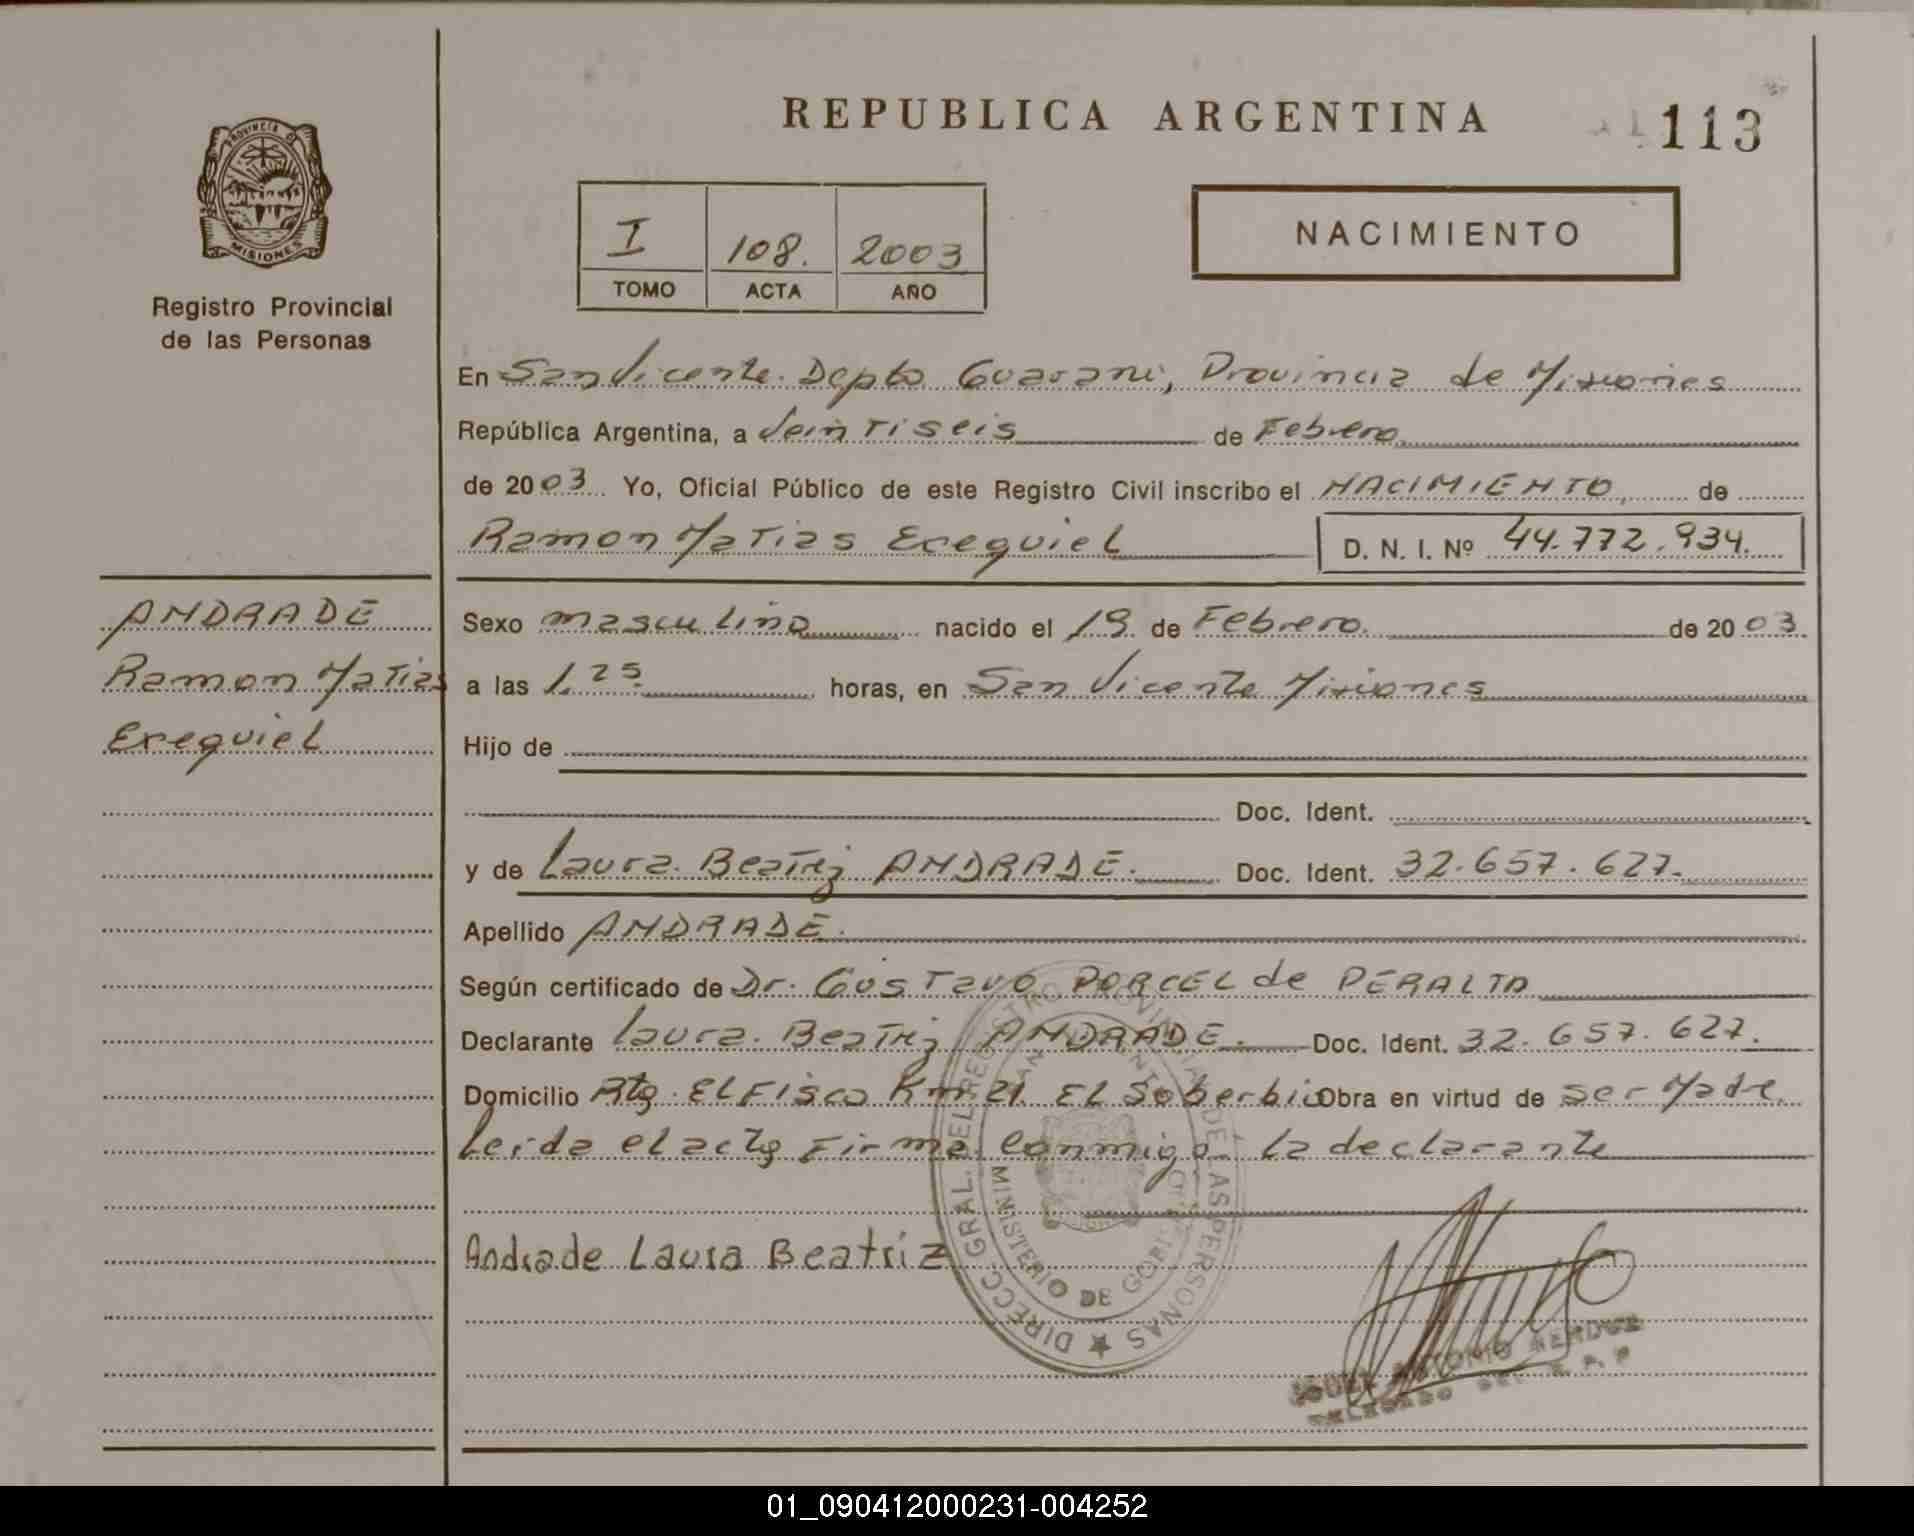 REPUBLICA ARGENTINA
113
PROVINCIA DE
MISIONES
Registro Provincial
de las Personas
I 108. 2003
TOMO ACTA AÑO
NACIMIENTO
En San Vicente. Depto Guarani, Provincia de Misiones
República Argentina, a Veintiseis de Febrero
de 2003 Yo, Oficial Público de este Registro Civil inscribo el NACIMIENTO, de
Ramon Matias Exequiel D. N. I. Nº 44.772.934.
ANDRADE
Ramon Matias
Exequiel
Sexo masculino nacido el 19 de Febrero. de 2003.
a las 1.25 horas, en San Vicente Misiones
Hijo de
Doc. Ident.
y de Laura. Beatriz ANDRADE. Doc. Ident. 32.657.627.
Apellido ANDRADE.
Según certificado de Dr. Gustavo PORCEL de PERALTA
Declarante Laura. Beatriz ANDRADE. Doc. Ident. 32.657.627.
Domicilio Rtg. El Fisco Km 21. El Soberbio Obra en virtud de ser Madre.
Leida el actg Firma Conmigo la declarante
Andrade Laura Beatriz
DIRECC. GRAL. DEL REGISTRO PROVINCIAL DE LAS PERSONAS
MINISTERIO DE
ANTONIO
DELEGADO DEL R. P.
01_090412000231-004252